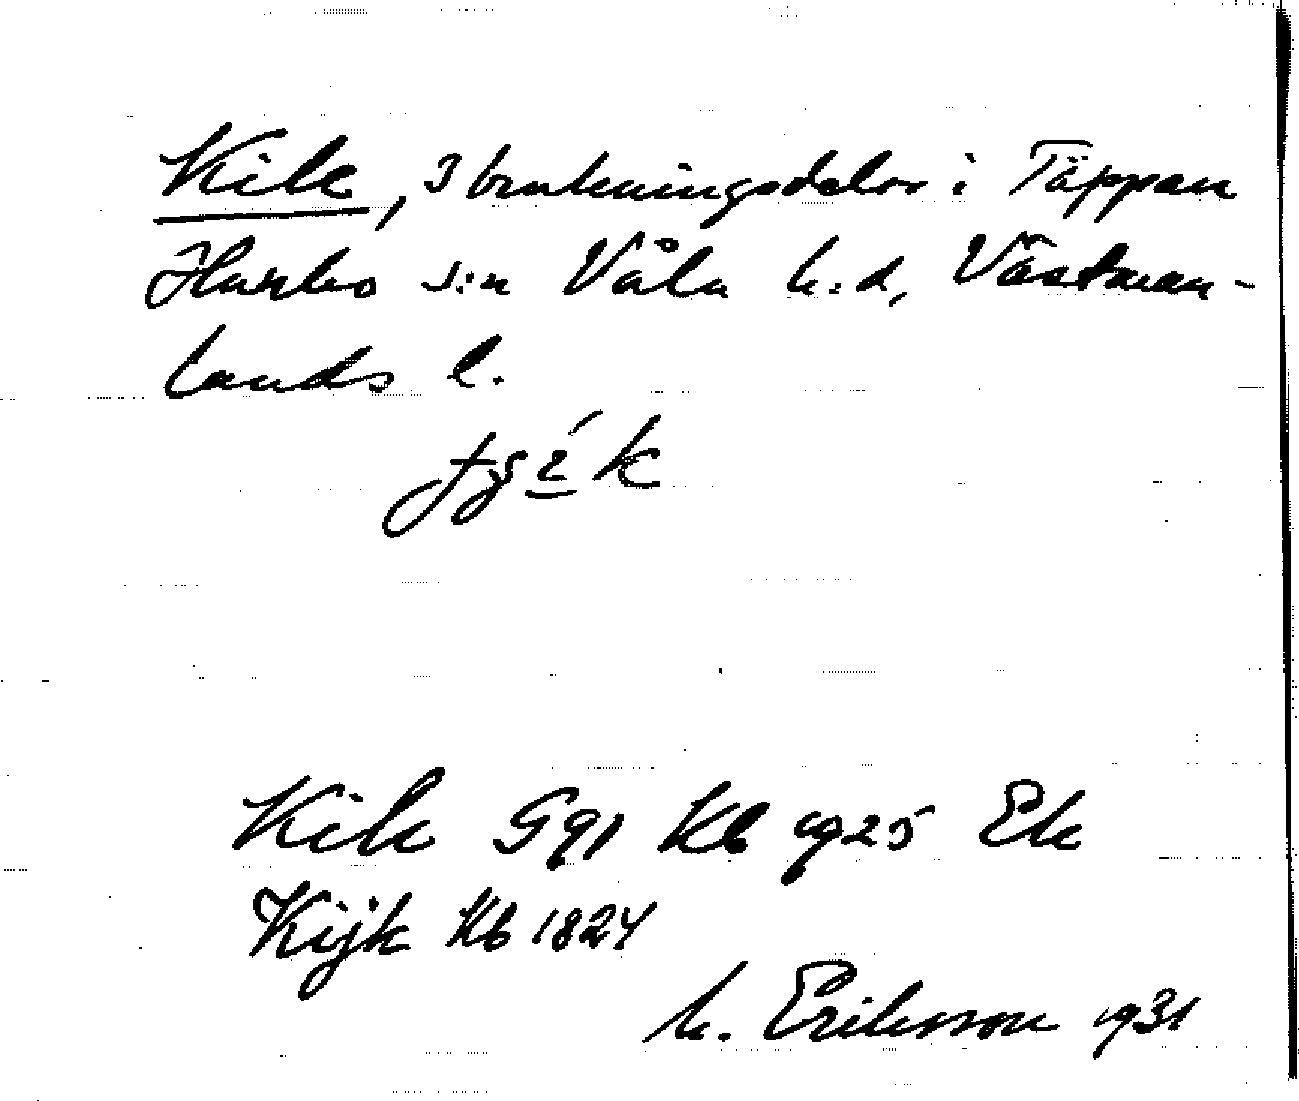 Kik, 3 brukningsdelar i Täppan
Harbo s:n Våla h.d, Västman-
lands l.
Kik G91 Kb 1925 Ek
Kijk Kb 1824
M. Eriksson 1931